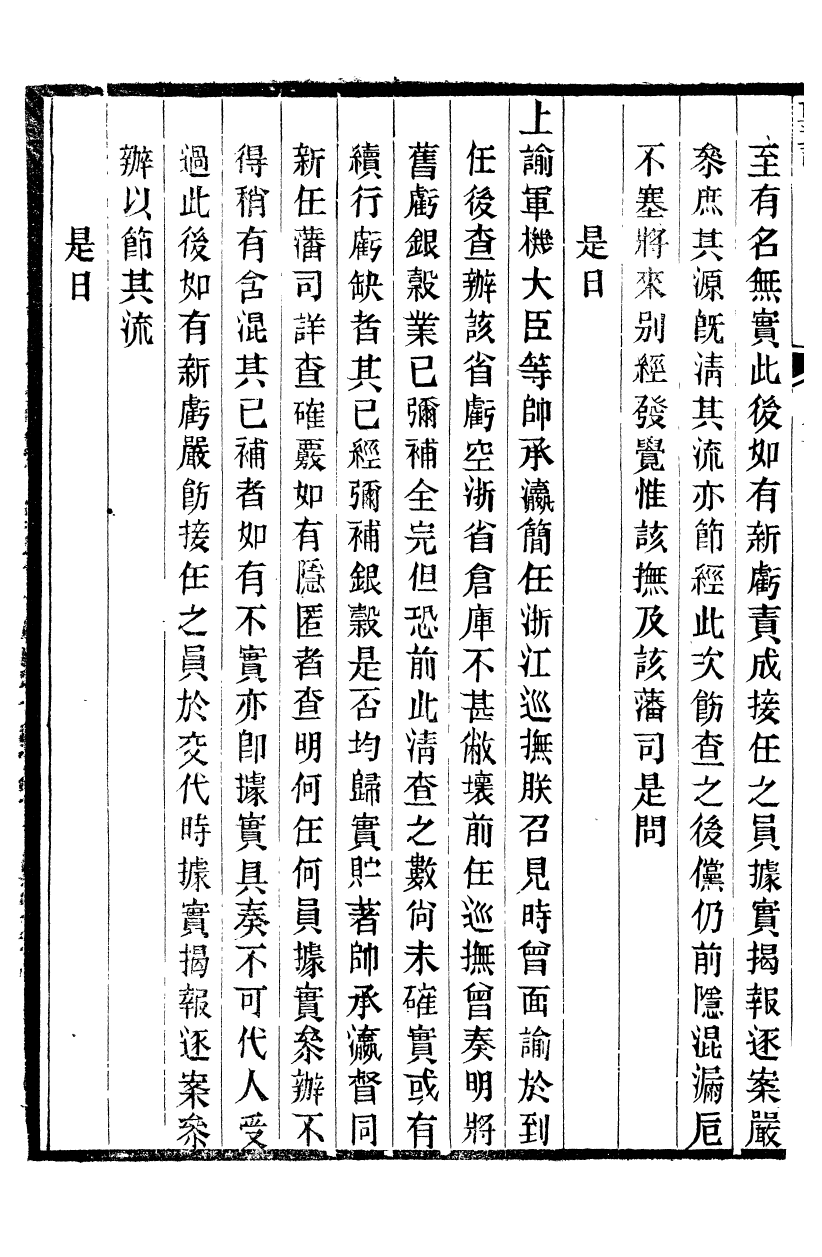 至有名無實此後如有新虧責成接任之員據實揭報逐案嚴
叅庶其源旣清其流亦節經此次飭查之後儻仍前隱混漏巵
不塞將來别經發覺惟該撫及該藩司是問
是日
上諭軍機大臣等帥承瀛簡任浙江巡撫朕召見時曾面諭於到
任後查辦該省虧空浙省倉庫不甚敝壞前任巡撫曾奏明將
舊虧銀穀業已彌補全完但恐前此清查之數尙未確實或有
續行虧缺者其已經彌補銀穀是否均歸實貯著帥承瀛督同
新任藩司詳查確覈如有隱匿者查明何任何員據實叅辦不
得稍有含混其已補者如有不實亦卽據實具奏不可代人受
過此後如有新虧嚴飭接任之員於交代時據實揭報逐案叅
辦以節其流
是日